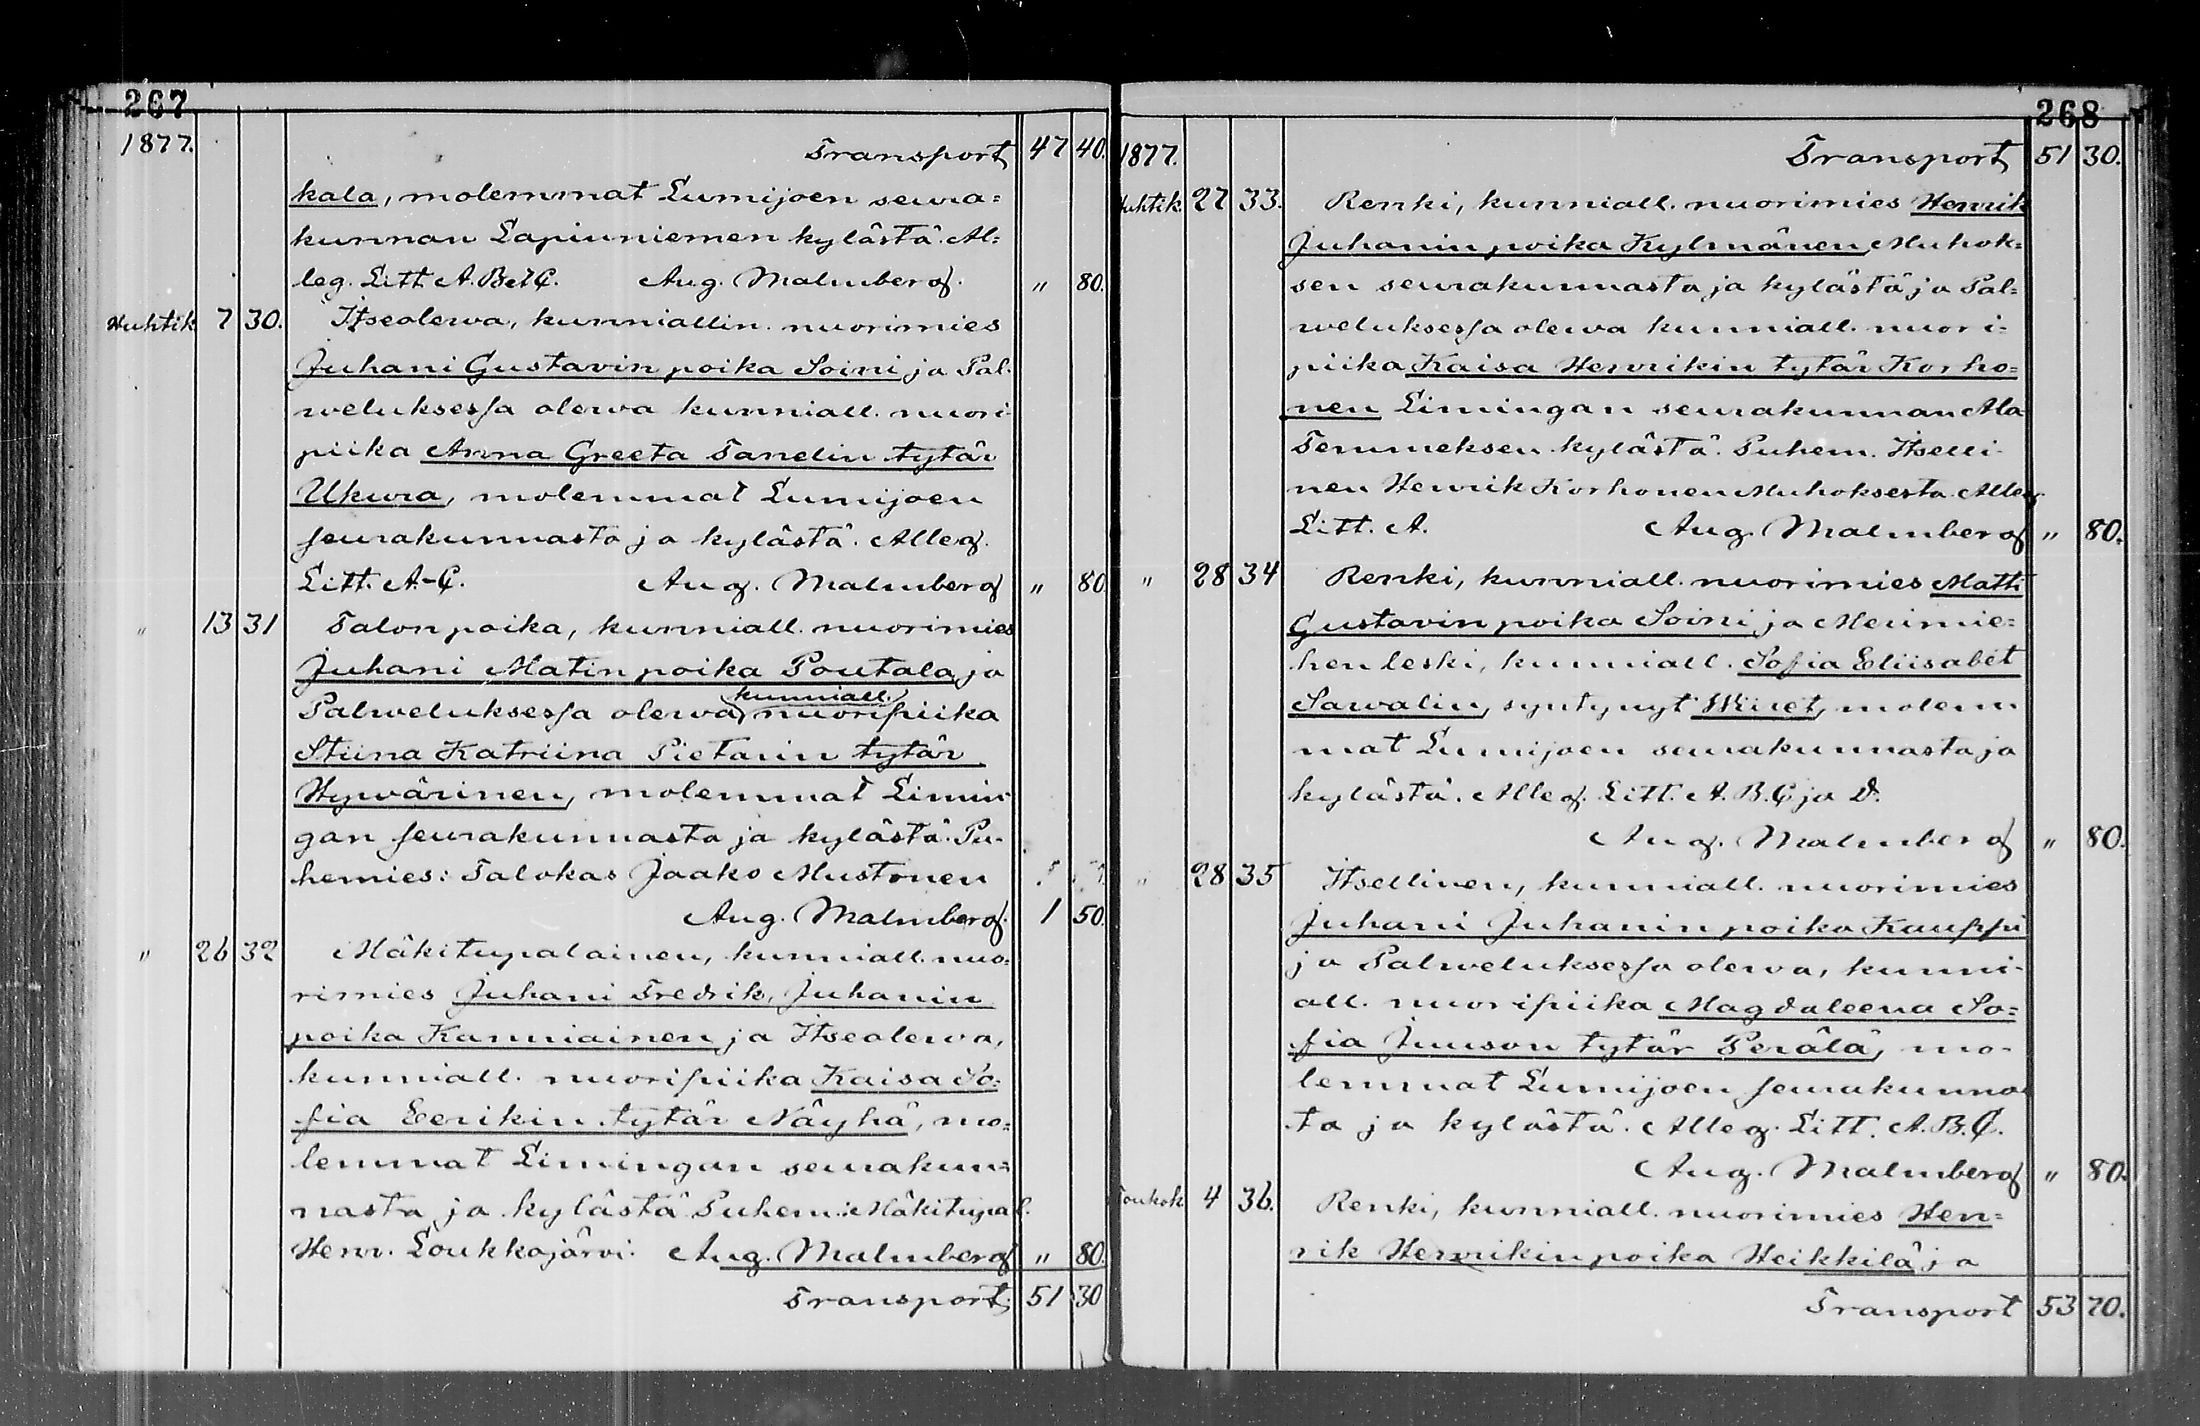 267
1877. Transport 47 40.
kala, molemmat Lumijoen seura=
kunnan Lapinniemen kylästä. Al=
leg. Litt A. B et C. Aug. Malmberg. " 80.
Huhtik 7 30. Itseolewa, kunniallin. nuorimies
Juhani Gustavin poika Soini ja Pal-
weluksessa olewa kunniall. nuori
piika Anna Greeta Tandin tytär
Ukura, molemmat Lumijoen
seurakunnasta ja kylästä. Alleg.
Litt. A-C. Aug. Malmberg " 80.
" 13 31 Talonpoika, kunniall. nuorimies
Juhani Matin poika Poutala ja
Palweluksessa olewa kunniall. nuoripiika
Stiina Katriina Pietarin tytär
Hywärinen, molemmat Limin-
gan seurakunnasta ja kylästä. Pu-
hemies: Talokas Jaako Mustonen
Aug. Malmberg. 1 50.
" 26 32 Mäkitupalainen, kunniall. nuo=
rimies Juhani Fredrik, Juhanin
poika Kanniainen ja Itseolewa,
kunniall. nuoripiika Kaisa So=
fia Eerikin tytär Näyhä, mo=
lemmat Limingan seurakun=
nasta ja kylästä Puhem: Mäkitupal.
Henr. Loukkojärvi. Aug. Malmberg " 80.
Transport 51 30
268
1877. Transport 51 30.
Huhtik. 27 33. Renki, kunniall. nuorimies Henrik
Juhanin poika Kylmänen Muhok=
sen seurakunnasta ja kylästä ja Pal=
weluksessa olewa kunniall. nuori=
piika Kaisa Henrikin tytär Korho=
nen Limingan seurakunnan Ala
Temmeksen kylästä. Puhem. Itselli-
nen Henrik Korhonen Muhoksesta. Alleg.
Litt. A. Aug. Malmberg " 80.
" 28 34 Renki, kunniall. nuorimies Matti
Gustavin poika Soini ja Merimie=
hen leski, kunniall. Sofia Eliisabet
Sarvalin, syntynyt molem
mat Lumijoen seurakunnasta ja
kylästä. Alleg. Litt. A. B. C ja D.
Aug. Malmberg " 80.
" 28 35 Itsellinen, kunniall. nuorimies
Juhani Juhanin poika Kauppi
ja Palweluksessa olewa, kunni-
all. nuoripiika Magdaleena So=
fia Juuson tytär Perälä, mo-
lemmat Lumijoen seurakunnas
ta ja kylästä. Alleg. Litt. A. B. C.
Aug. Malmberg " 80.
Toukok 4 36. Renki, kunniall. nuorimies Hen=
rik Henrikin poika Heikkilä ja
Transport 53 70.